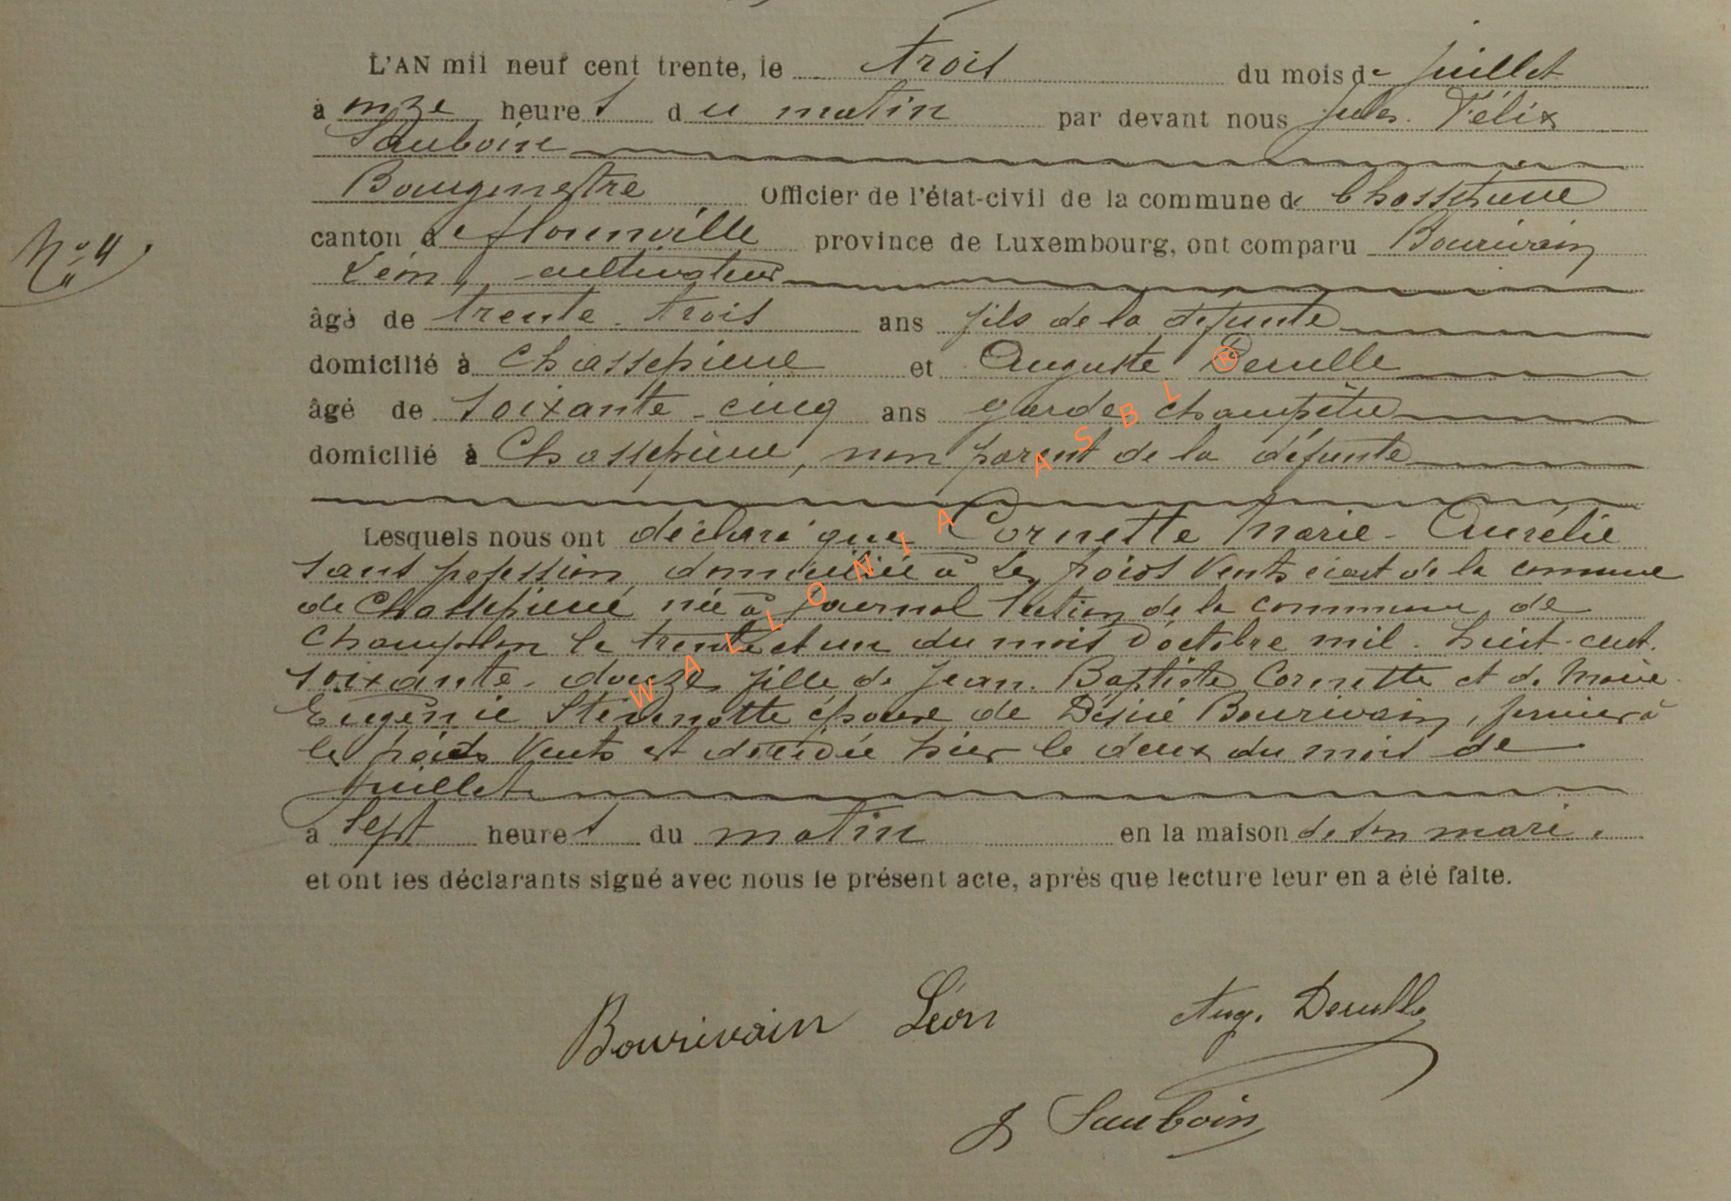 L'AN mil neuf cent trente, le trois du mois de juillet
à onze heures du matin par devant nous Jules Félix
Sauboin
Bourgmestre Officier de l'état-civil de la commune de Chassepierre
canton de Florenville province de Luxembourg, ont comparu Bourivain
Léon, cultivateur
âgé de trente-trois ans fils de la défunte
domicilié à Chassepierre et Auguste Derulle
âgé de soixante-cinq ans garde champêtre
domicilié à Chassepierre, non parent de la défunte
N° 4
Lesquels nous ont déclaré que Cornette Marie-Aurélie
sans profession domiciliée à Les poids Vents écart de la commune
de Chassepierre née à Journal section de la commune de
Champlon le trente et un du mois d'octobre mil-huit-cent-
soixante-douze fille de Jean-Baptiste Cornette et de Marie-
Eugénie Stévenotte épouse de Désiré Bourivain, fermier à
les poids Vents est décédée hier le deux du mois de
juillet
à sept heures du matin en la maison de son mari.
et ont les déclarants signé avec nous le présent acte, après que lecture leur en a été faite.
Bourivain Léon Aug. Derulle
J Sauboin
WALLONIA ASBL ®